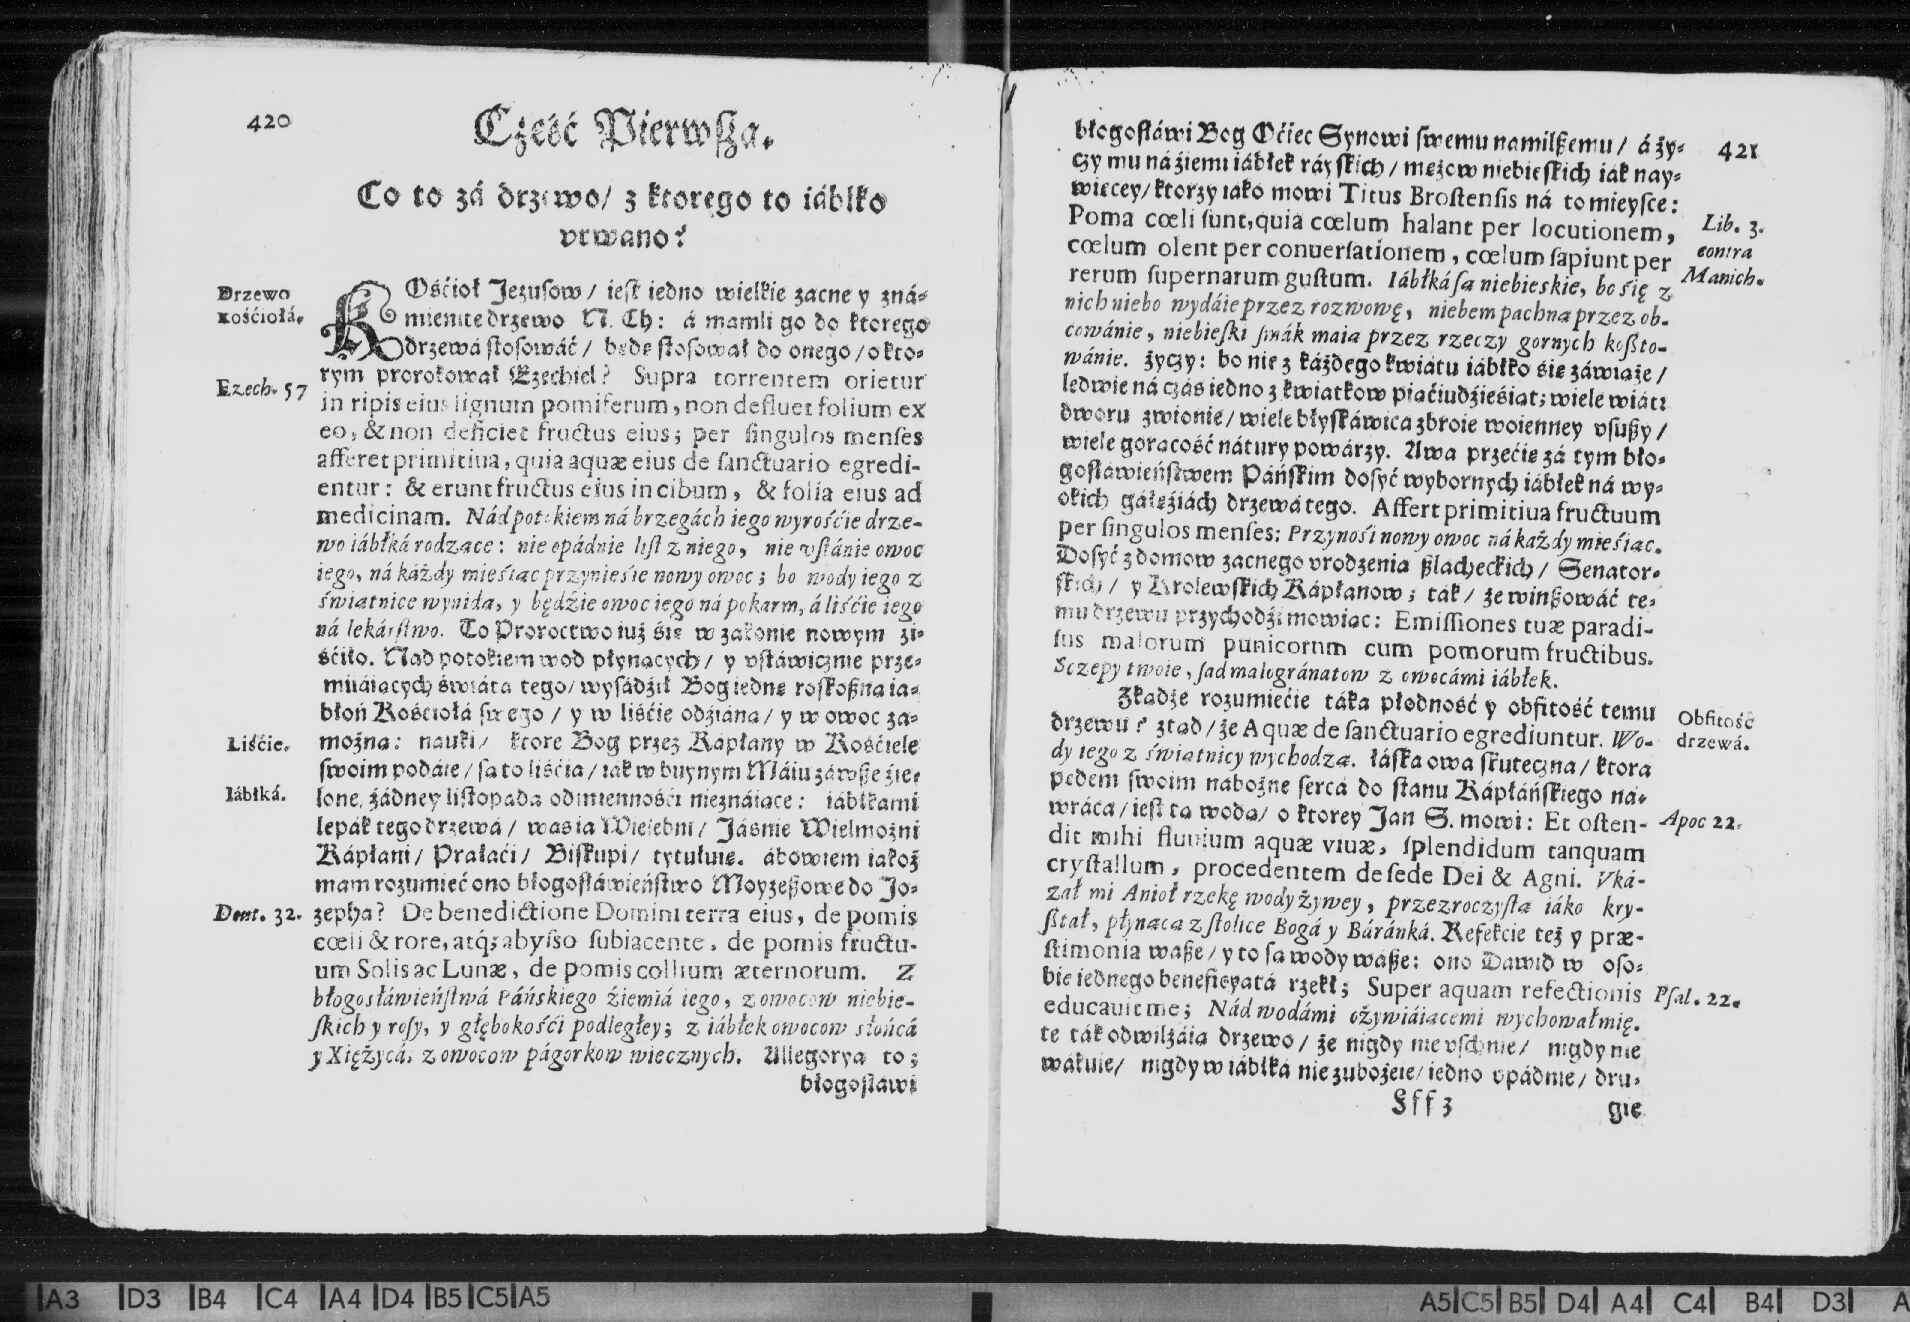 420
Część Pierwsza.
Co to zá drzewo/ z ktorego to iábłko
vrwano?
Drzewo
Kośćiołá.
KOśćioł Jezusow/ iest iedno wielkie zacne y zná-
mienite drzewo N. Ch: á mamli go do ktorego
drzewá stosowáć/ będę stosował do onego/ o kto-
rym prorokował Ezechiel? Supra torrentem orietur
Ezech. 57
in ripis eius lignum pomiferum, non defluet folium ex
eo, & non deficiet fructus eius; per singulos menses
afferet primitiua, quia aquæ eius de sanctuario egredi-
entur: & erunt fructus eius in cibum, & folia eius ad
medicinam. Nád potokiem ná brzegách iego wyrośćie drze-
wo iábłká rodzące: nie opádnie list z niego, nie vstánie owoc
iego, ná każdy mieśiąc przynieśie nowy owoc; bo wody iego z
świątnice wynidą, y będźie owoc iego ná pokarm, á liśćie iego
ná lekárstwo. To Proroctwo iuż się w zakonie nowym zi-
śćiło. Nad potokiem wod płynących/ y vstáwicznie prze-
miiáiących świátá tego/ wysádźił Bog iednę roskoszną ia-
błoń Kośćiołá swego/ y w liśćie odźiáną/ y w owoc za-
Liśćie.
możną: nauki/ ktore Bog przez Kápłany w Kośćiele
swoim podáie/ są to liśćia/ iak w buynym Máiu záwsze źie-
Iábłká.
lone, żádney listopada odmiennośći nieznáiące: iábłkami
lepák tego drzewá/ was ia Wielebni/ Jásnie Wielmożni
Kápłani/ Prałaći/ Biskupi/ tytułuię. ábowiem iakoż
mam rozumieć ono błogosłáwieństwo Moyzeszowe do Jo-
Deut. 32.
zepha? De benedictione Domini terra eius, de pomis
cœli & rore, atq; abysso subiacente, de pomis fructu-
um Solis ac Lunæ, de pomis collium æternorum. Z
błogosłáwieństwá Páńskiego źiemiá iego, z owocow niebie-
skich y rosy, y głębokośći podległey; z iábłek owocow słońcá
y Xiężycá, z owocow págorkow wiecznych. Allegorya to;
błogosławi
błogosłáwi Bog Oćiec Synowi swemu namilszemu/ á ży-
421
czy mu ná źiemi iábłek ráyskich/ mężow niebieskich iák nay-
więcey/ ktorzy iáko mowi Titus Brostensis ná to mieysce:
Poma cœli sunt, quia cœlum halant per locutionem,
Lib. 3.
cœlum olent per conuersationem, cœlum sapiunt per
contra
rerum supernarum gustum. Iábłká są niebieskie, bo się z
Manich.
nich niebo wydáie przez rozmowę, niebem pachną przez ob-
cowánie, niebieski smák maią przez rzeczy gornych koszto-
wánie. życzy: bo nie z káżdego kwiátu iábłko się záwiąże/
ledwie ná czás iedno z kwiatkow piąćiudźieśiąt; wiele wiátr
dworu zwionie/ wiele błyskáwicá zbroie woienney vsuszy/
wiele gorącość nátury powárzy. Awa przećię zá tym bło-
gosłáwieństwem Páńskim dosyć wybornych iábłek ná wy-
okich gáłęźiách drzewá tego. Affert primitiua fructuum
per singulos menses: Przynośi nowy owoc ná każdy mieśiąc.
Dosyć z domow zacnego vrodzenia szlacheckich/ Senator-
skich/ y Krolewskich Kápłanow; ták/ że winszowáć te-
mu drzewu przychodźi mowiąc: Emissiones tuæ paradi-
sus malorum punicorum cum pomorum fructibus.
Sczepy twoie, sad malogránatow z owocámi iábłek.
Zkądże rozumiećie táka płodność y obfitość temu
Obfitość
drzewu? ztąd/ że Aquæ de sanctuario egrediuntur. Wo-
drzewá.
dy iego z świątnicy wychodzą. łáska owa skuteczna/ ktora
pędem swoim nabożne sercá do stanu Kápłáńskiego ná-
wráca/ iest ta woda/ o ktorey Jan S. mowi: Et osten-
Apoc 22.
dit mihi fluvium aquæ viuæ, splendidum tanquam
crystallum, procedentem de sede Dei & Agni. Vká-
zał mi Anioł rzekę wody żywey, przezroczystą iáko kry-
ształ, płynącą z stolice Bogá y Báránká. Refekcie też y præ-
stimonia wasze/ y to są wody wasze: ono Dawid w oso-
bie iednego beneficyatá rzekł; Super aquam refectionis
Psal. 22.
educauit me; Nád wodámi ożywiáiącemi wychował mię.
te ták odwilżáią drzewo/ że nigdy nie vschnie/ nigdy nie
wákuie/ nigdy w iábłká nie zubożeie/ iedno opádnie/ dru-
Fff 3
gie